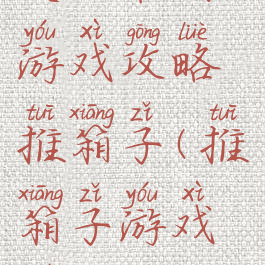 yóu xì gōng lüè
游戏攻略
tuī xiāng zǐ tuī
推箱子(推
xiāng zǐ yóu xì
箱子游戏